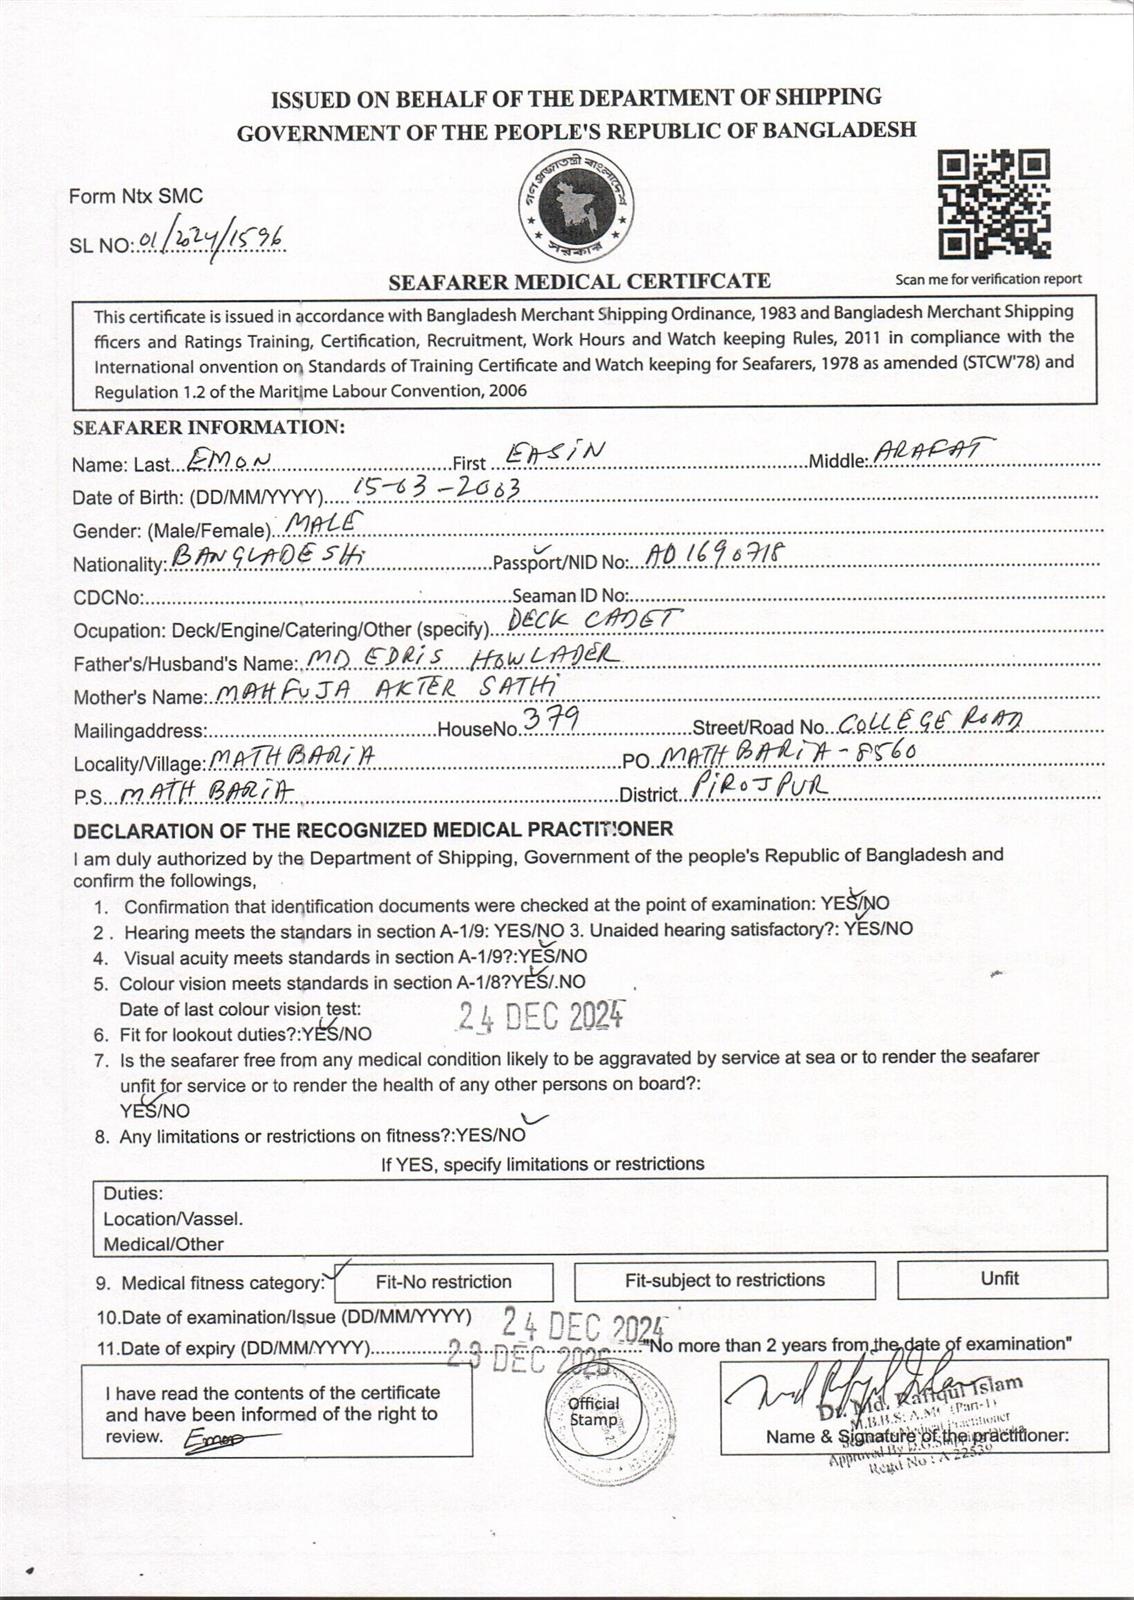 ISSUED ON BEHALF OF THE DEPARTMENT OF SHIPPING
GOVERNMENT OF THE PEOPLE'S REPUBLIC OF BANGLADESH
গণপ্রজাতন্ত্রী বাংলাদেশ
সরকার
Form Ntx SMC
SL NO:01/2024/1596
Scan me for verification report
SEAFARER MEDICAL CERTIFCATE
This certificate is issued in accordance with Bangladesh Merchant Shipping Ordinance, 1983 and Bangladesh Merchant Shipping
fficers and Ratings Training, Certification, Recruitment, Work Hours and Watch keeping Rules, 2011 in compliance with the
International onvention on Standards of Training Certificate and Watch keeping for Seafarers, 1978 as amended (STCW'78) and
Regulation 1.2 of the Maritime Labour Convention, 2006
SEAFARER INFORMATION:
Name: Last EMON First EASIN Middle: ARAFAT
Date of Birth: (DD/MM/YYYY) 15-03-2003
Gender: (Male/Female) MALE
Nationality: BANGLADESHi Passport/NID No: A01690718
CDCNo: Seaman ID No:
Ocupation: Deck/Engine/Catering/Other (specify) DECK CADET
Father's/Husband's Name: MD EDRIS HOWLADER
Mother's Name: MAHFUJA AKTER SATHi
Mailingaddress: HouseNo 379 Street/Road No. COLLEGE ROAD
Locality/Village: MATHBARIA PO MATHBARiA-8560
P.S. MATHBARiA District PiROJPUR
DECLARATION OF THE RECOGNIZED MEDICAL PRACTITIONER
I am duly authorized by the Department of Shipping, Government of the people's Republic of Bangladesh and
confirm the followings,
1. Confirmation that identification documents were checked at the point of examination: YES/NO
2 . Hearing meets the standars in section A-1/9: YES/NO 3. Unaided hearing satisfactory?: YES/NO
4. Visual acuity meets standards in section A-1/9?:YES/NO
5. Colour vision meets standards in section A-1/8?YES/.NO
Date of last colour vision test: 24 DEC 2024
6. Fit for lookout duties?:YES/NO
7. Is the seafarer free from any medical condition likely to be aggravated by service at sea or to render the seafarer
unfit for service or to render the health of any other persons on board?:
YES/NO
8. Any limitations or restrictions on fitness?:YES/NO
If YES, specify limitations or restrictions
Duties:
Location/Vassel.
Medical/Other
9. Medical fitness category: Fit-No restriction Fit-subject to restrictions Unfit
10.Date of examination/Issue (DD/MM/YYYY) 24 DEC 2024
11.Date of expiry (DD/MM/YYYY) 23 DEC 2026 "No more than 2 years from the date of examination"
I have read the contents of the certificate
and have been informed of the right to
review. Emon
Official
Stamp
Dr. Md. Rafiqul Islam
M.B.B.S. A.M.C (Part-1)
Name & Signature of the practitioner:
Regd No: A 22539